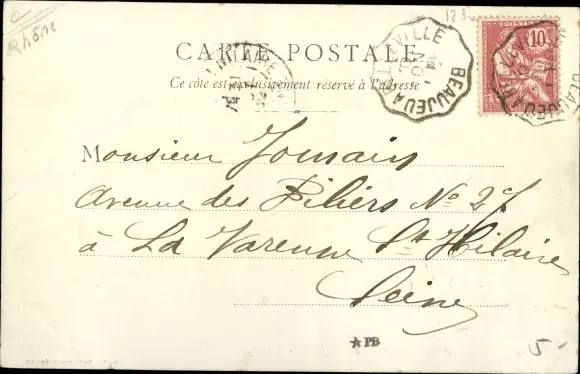 Rhône
123
CARTE POSTALE
Ce côté est exclusivement réservé à l'adresse
BELLEVILLE
BEAUJEU
10
Monsieur Jomain
Avenue des Piliers No 27
à La Varenne St Hilaire
Seine
PB
5